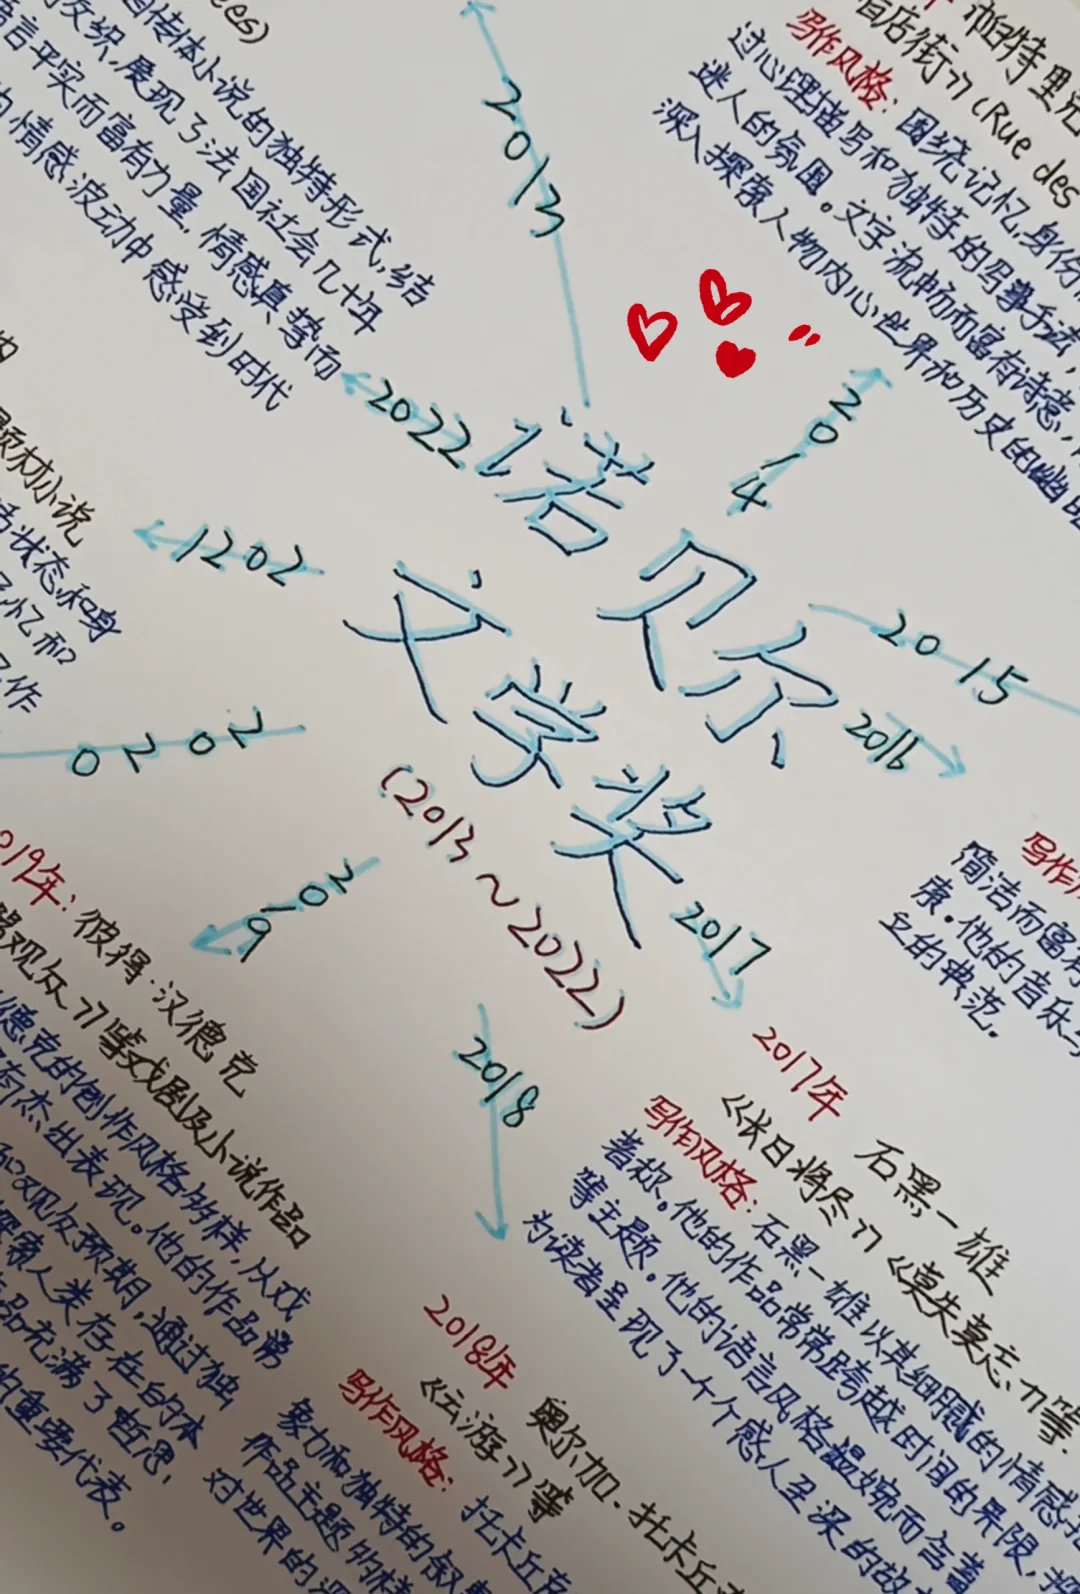 诺贝尔
文学奖
(2013～2022)
2013
2014
2015
2016
2017
2018
2019
2020
2021
2022
帕特里克
店街》(Rue des
写作风格：围绕记忆,身份
过心理描写和独特的叙事手法,
迷人的氛围。文字流畅而富有诗意,
深入探索人物内心世界和历史的幽
写作
简洁而富有
康。他的音乐
立的典范。
2017年 石黑一雄
《长日将尽》《莫失莫忘、》等.
写作风格：石黑一雄以其细腻的情感
著称。他的作品常常跨越时间的界限,
等主题。他的语言风格温婉而含蓄
为读者呈现了一个个感人至深的故
2018年 奥尔加、托卡丘
《云游》等
写作风格：托卡丘
象力和独特的叙
作品主题多样
对世界的深
019年：彼得·汉德克
观众》等戏剧及小说作品
德克的创作风格多样,从戏
有杰出表现。他的作品常
和观众预期,通过独
探索人类存在的本
品充满了哲思,
的重要代表。
题材小说
活状态和身
忆和
作
ees)
自传体小说的独特形式,结
交织,展现了法国社会几十年
语言平实而富有力量,情感真挚而
的情感波动中感受到时代